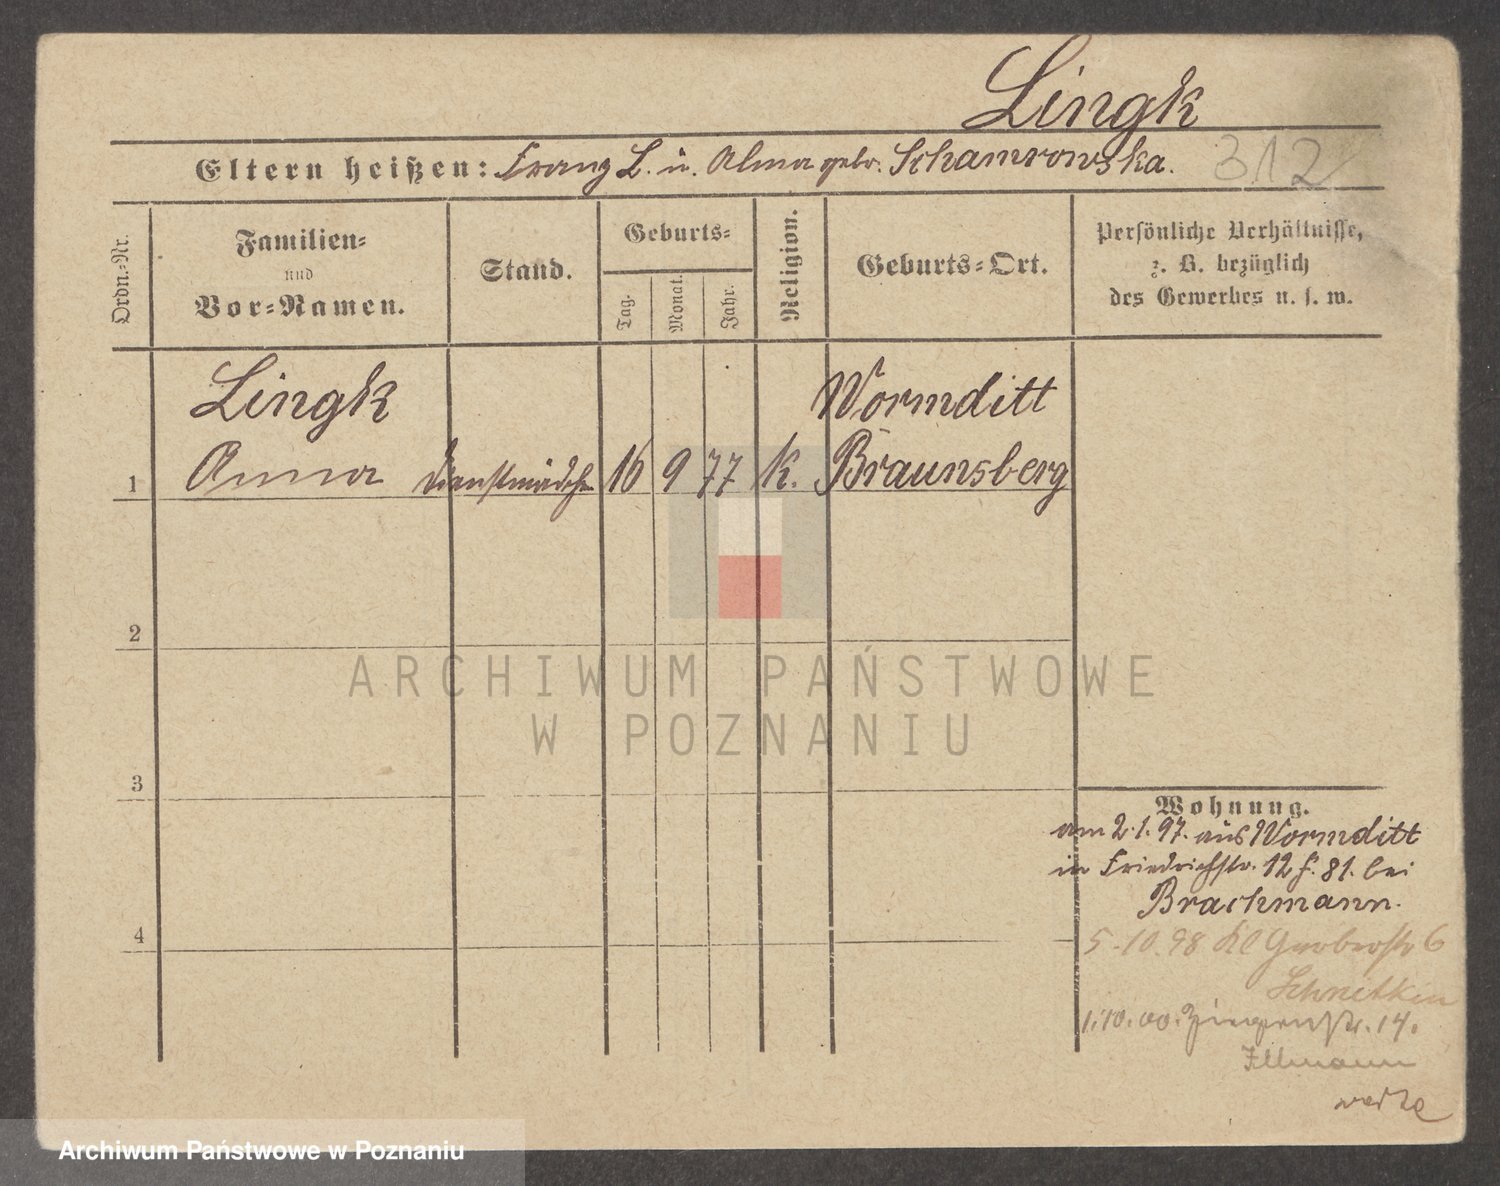 Lingk
Eltern heißen: Franz L. u. Alma gebr. Schamrowska. 312
Ordn.-Nr.
Familien-
und
Vor-Namen.
Stand.
Geburts-
Tag.
Monat.
Jahr.
Religion.
Geburts-Ort.
Persönliche Verhältnisse,
z. B. bezüglich
des Gewerbes u. s. w.
Lingk Wormditt
1 Anna Dienstmädchen 16 9 77 K. Braunsberg
2
3
4
Wohnung.
am 2.1.97. aus Wormditt
in Friedrichstr. 12 f. 81. bei
Brachmann.
5.10.98 Kl Gerberstr 6
1.10.00. Ziegenstr. 14.
Illmann
ARCHIWUM PAŃSTWOWE
W POZNANIU
Archiwum Państwowe w Poznaniu